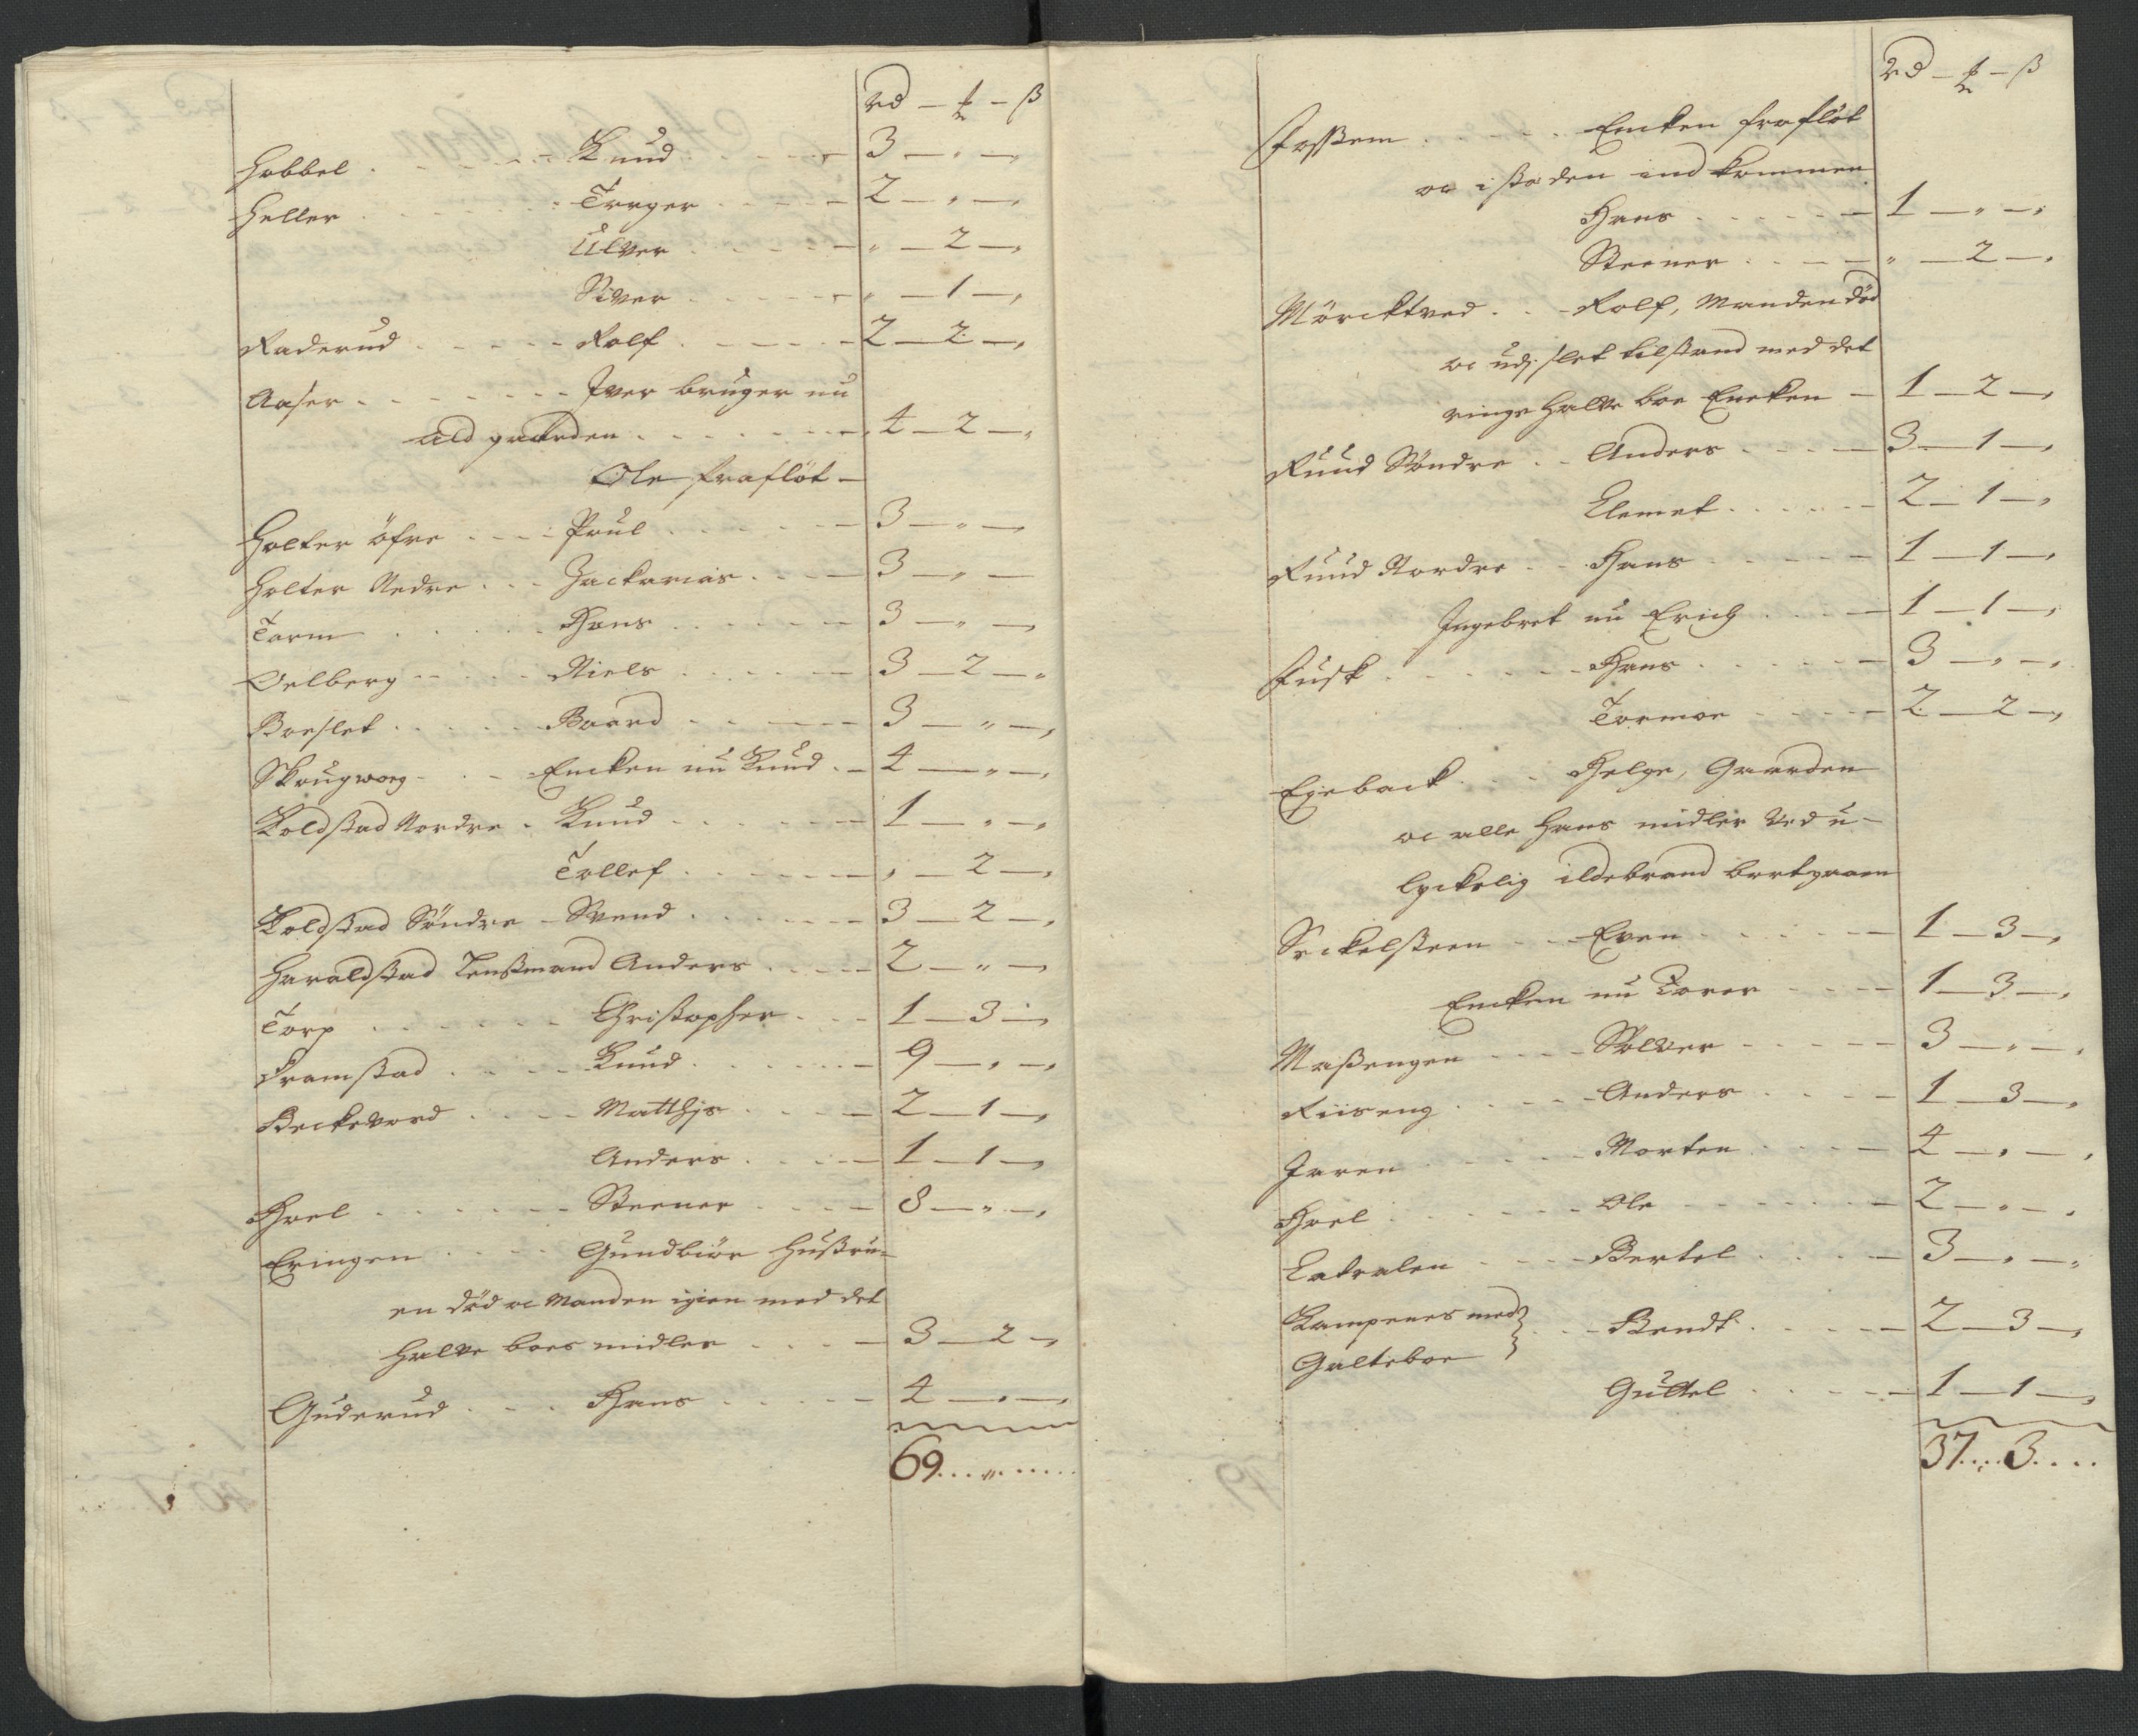 rd — ₻ — ß
Hobbel . . . . . Knud . . . . 3 — „ — „
Heller . . . . . Torger . . . . 2 — „ — „
Ulver . . . . „ — 2 — „
Siver . . . . „ — 1 — „
Raderud . . . . Rolf . . . . 2 — 2 — „
Aaser . . . . Iver bruger nu
ald gaarden . . . . 4 — 2 — „
Ole fraflöt —
Holter öfre . . . . Poul . . . . 3 — „ — „
Holter Nedre . . . Zackarias . . . 3 — „ —
Torm . . . . . Hans . . . . 3 — „ — „
Oelberg . . . . Niels . . . . 3 — 2 — „
Boeslet . . . . Baard . . . . 3 — „ — „
Skougworg . . . Encken nu Knud . — 4 — „ — „
Koldstad Nordre . Knud . . . . 1 — „ — „
Tollef . . . . „ — 2 — „
Koldstad Söndre — Svend . . . . 3 — 2 — „
Haraldstad Lensmand Anders . . . . 2 — „ — „
Torp . . . . . Christopher . . . 1 — 3 — „
Framstad . . . . Knud . . . . 9 — „ — „
Beckevord . . . . Matthjs . . . . 2 — 1 — „
Anders . . . . 1 — 1 — „
Hoel . . . . . Steener . . . . 8 — „ — „
Eringen . . . . Gundbiör Hustru-
en död oc Manden igien med det
halve boes midler . . . . 3 — 2 — „
Guderud . . . Hans . . . . 4 — „ — „
69 . . . „ . . . .
rd — ₻ — ß
Fossem . . . . . Encken fraflöt
oc i staden ind kommen
Hans . . . . . 1 — „ — „
Steener . . . . „ — 2 — „
Mörcktved . . — Rolf, Manden död
oc udj slet tilstand med det
ringe halve boe Encken — 1 — 2 — „
Ruud Söndre . . Anders . . . . 3 — 1 — „
Clemet . . . . . 2 — 1 — „
Ruud Nordre . . Hans . . . . 1 — 1 — „
Ingebret nu Erich . . . — 1 — 1 — „
Fusk . . . . . Hans . . . . . 3 — „ — „
Tormoe . . . . 2 — 2 — „
Egeback . . . Helge, Gaarden
oc alle hans midler Ved u-
lyckelig ildebrand bortgaaen
Seckelsteen . . . Even . . . . . 1 — 3 — „
Encken nu Torer . . . . 1 — 3 — „
Massengen . . . . Solver . . . . 3 — „ — „
Riiseng . . . . Anders . . . . 1 — 3 — „
Jaren . . . . . Morten . . . . 4 — „ — „
Hoel . . . . . Ole . . . . . 2 — „ — „
Latralen . . . . Bertel . . . . 3 — „ — „
Kampenes med } . . . Bendt . . . . 2 — 3 — „
Galteboe }
Guttel . . . . 1 — 1 — „
37 . . . 3 . . . .